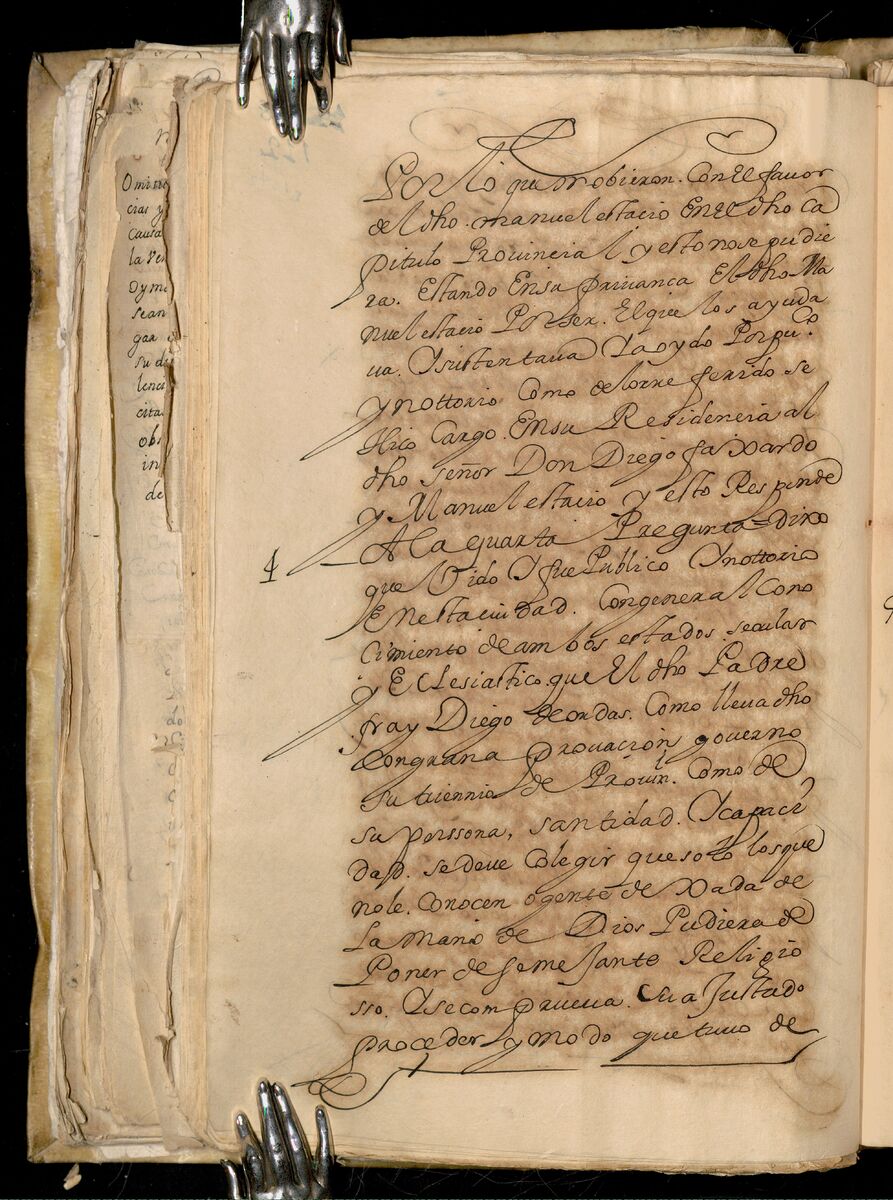 Omitie
cias y
Causa
la ve
Dyme
sean
gar
su di
lenci
cita
obs
in
de
Por lo que mobieron. Con El favor
del dho. manuel estacio En El dho Ca
pitulo Provincial y esto no se pudie
ra. Estando En su privanca El dho Ma
nuel estacio Por ser. El que los ayuda
ua. Y sustentaua Y a oydo Por pu.co
y nottorio Como de lo rre ferido se
Hico Cargo. En su Residencia al
dho señor Don Diego faxardo
y Manuel estacio y esto Responde
4 A la quarta Pregunta = dixo
que Vido Y fue Publico Y nottorio
En esta ciudad. Con general Cono
Cimiento de ambos estados. secular
y Eclesiastico. que El dho Padre
fray Diego de ordas. Como lleva dho
Con grana provacion governo
su triennio de Provin.l Como de
su perssona, santidad. Y capaci
dad. se deve Colegir que solo los que
no le. Conocen o gente de xada de
La mano de Dios Pudiera de
Poner de seme Jante Religio
sso. Y se comprueva. Su a Justado
proceder y modo que tuvo de